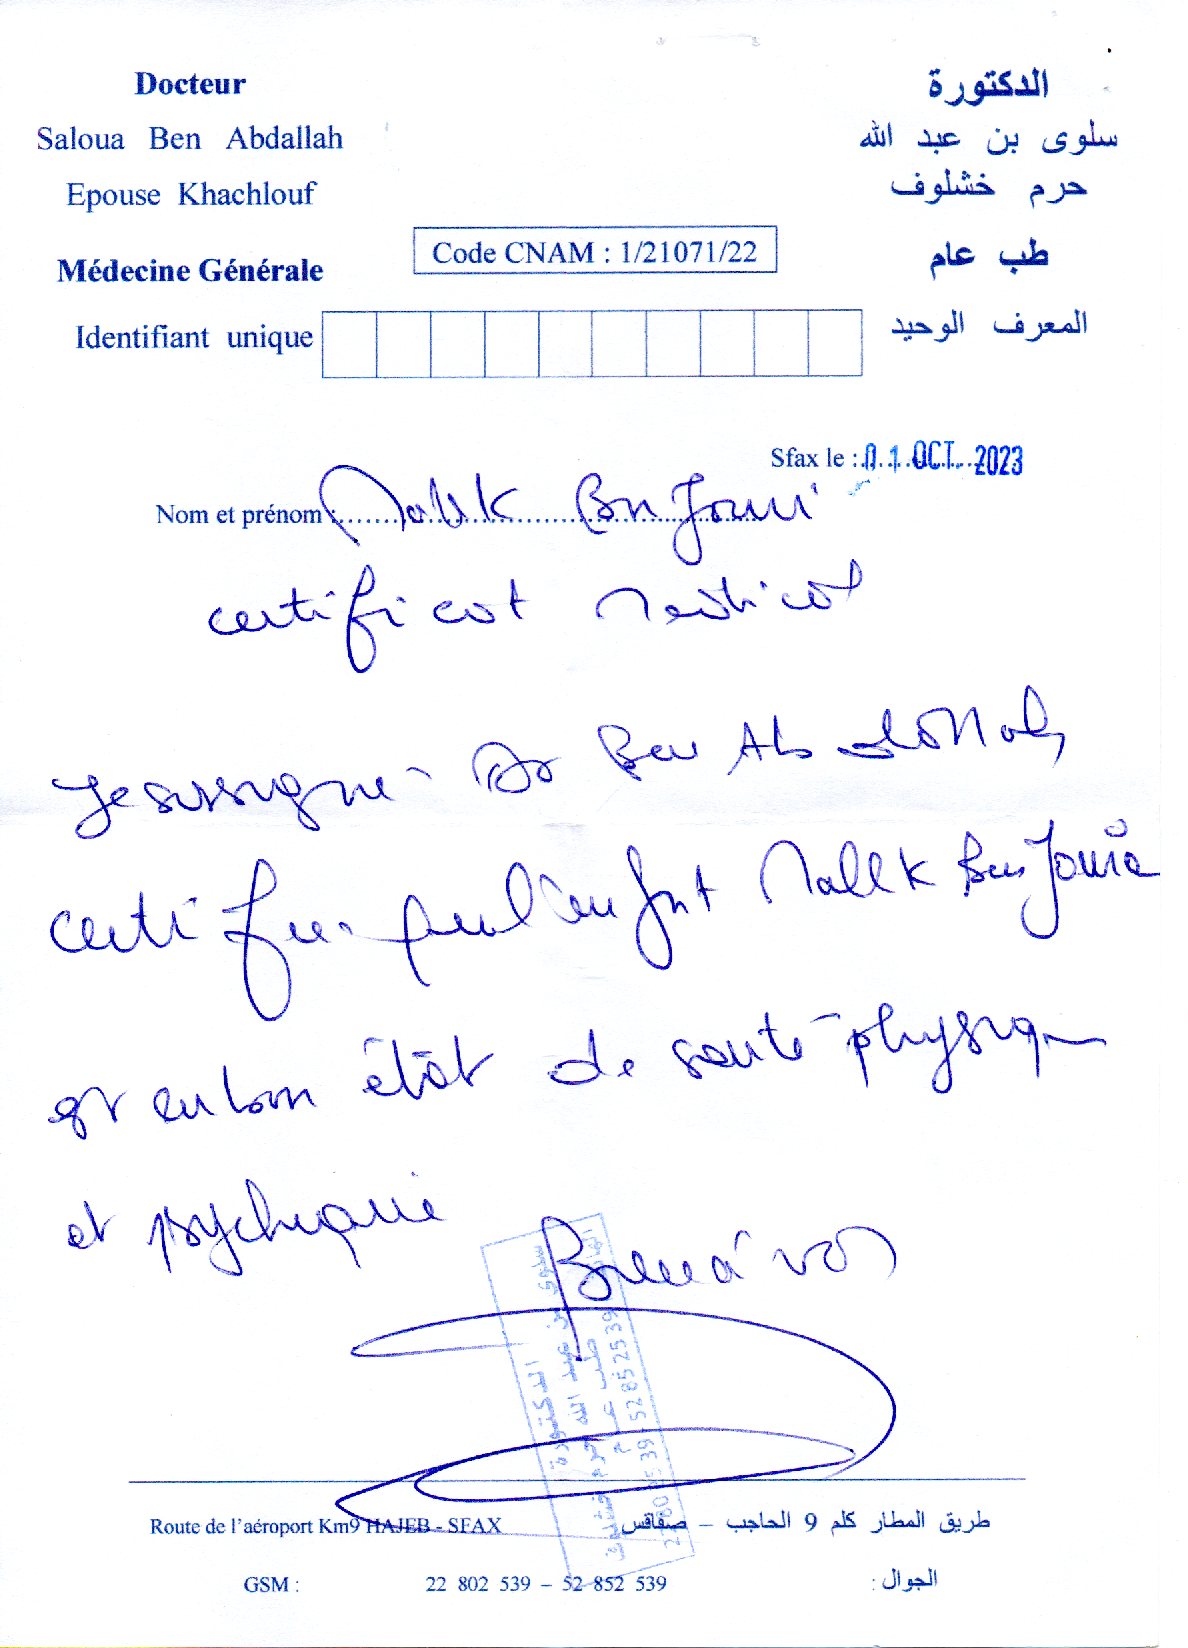 Docteur
الدكتورة
Saloua Ben Abdallah
سلوى بن عبد الله
Epouse Khachlouf
حرم خشلوف
Code CNAM : 1/21071/22
Médecine Générale
طب عام
Identifiant unique
المعرف الوحيد
Sfax le : 01 OCT. 2023
Nom et prénom : Malek Ben Jomi
certificat Medical
Je sousigné Dr Ben Abdallah
certifie que l'enfant Malek Ben
est en bon état de santé physique
et psychique
الدكتورة
سلوى بن عبد الله حرم خشلوف
طب عام
52852539
Route de l'aéroport Km9 HAJEB - SFAX
طريق المطار كلم 9 الحاجب – صفاقس
GSM : 22 802 539 – 52 852 539 الجوال :